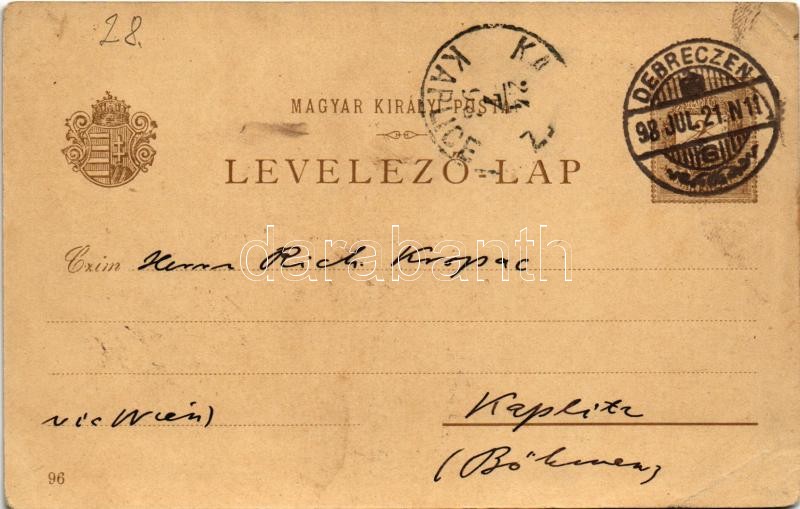 28.
DEBRECZEN
98 JUL. 21. N 11
KAPLICE
MAGYAR KIRÁLYI POSTA
LEVELEZŐ-LAP
darabanth
Czim Herrn Rich. Kropac
via Wien)
Kaplitz
(Böhmen)
96